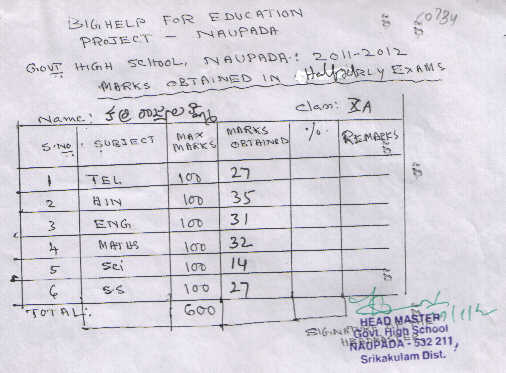 BIGHELP FOR EDUCATION
PROJECT - NAUPADA
60734
GOVT HIGH SCHOOL, NAUPADA: 2011-2012
MARKS OBTAINED IN Halfyearly EXAMS
Name: Class: X A
S.NO SUBJECT MAX MARKS MARKS OBTAINED % REMARKS
1 TEL 100 27
2 HIN 100 35
3 ENG 100 31
4 MATHS 100 32
5 Sci 100 14
6 S.S 100 27
TOTAL: 600
HEAD MASTER
Govt. High School
NAUPADA - 532 211,
Srikakulam Dist.